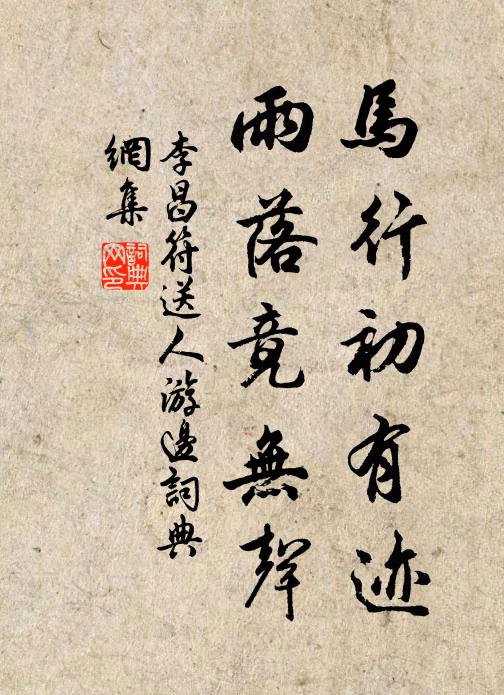 馬行初有迹
雨落竟無聲
李昌符送人游邊詞典
網集
詞典
网印